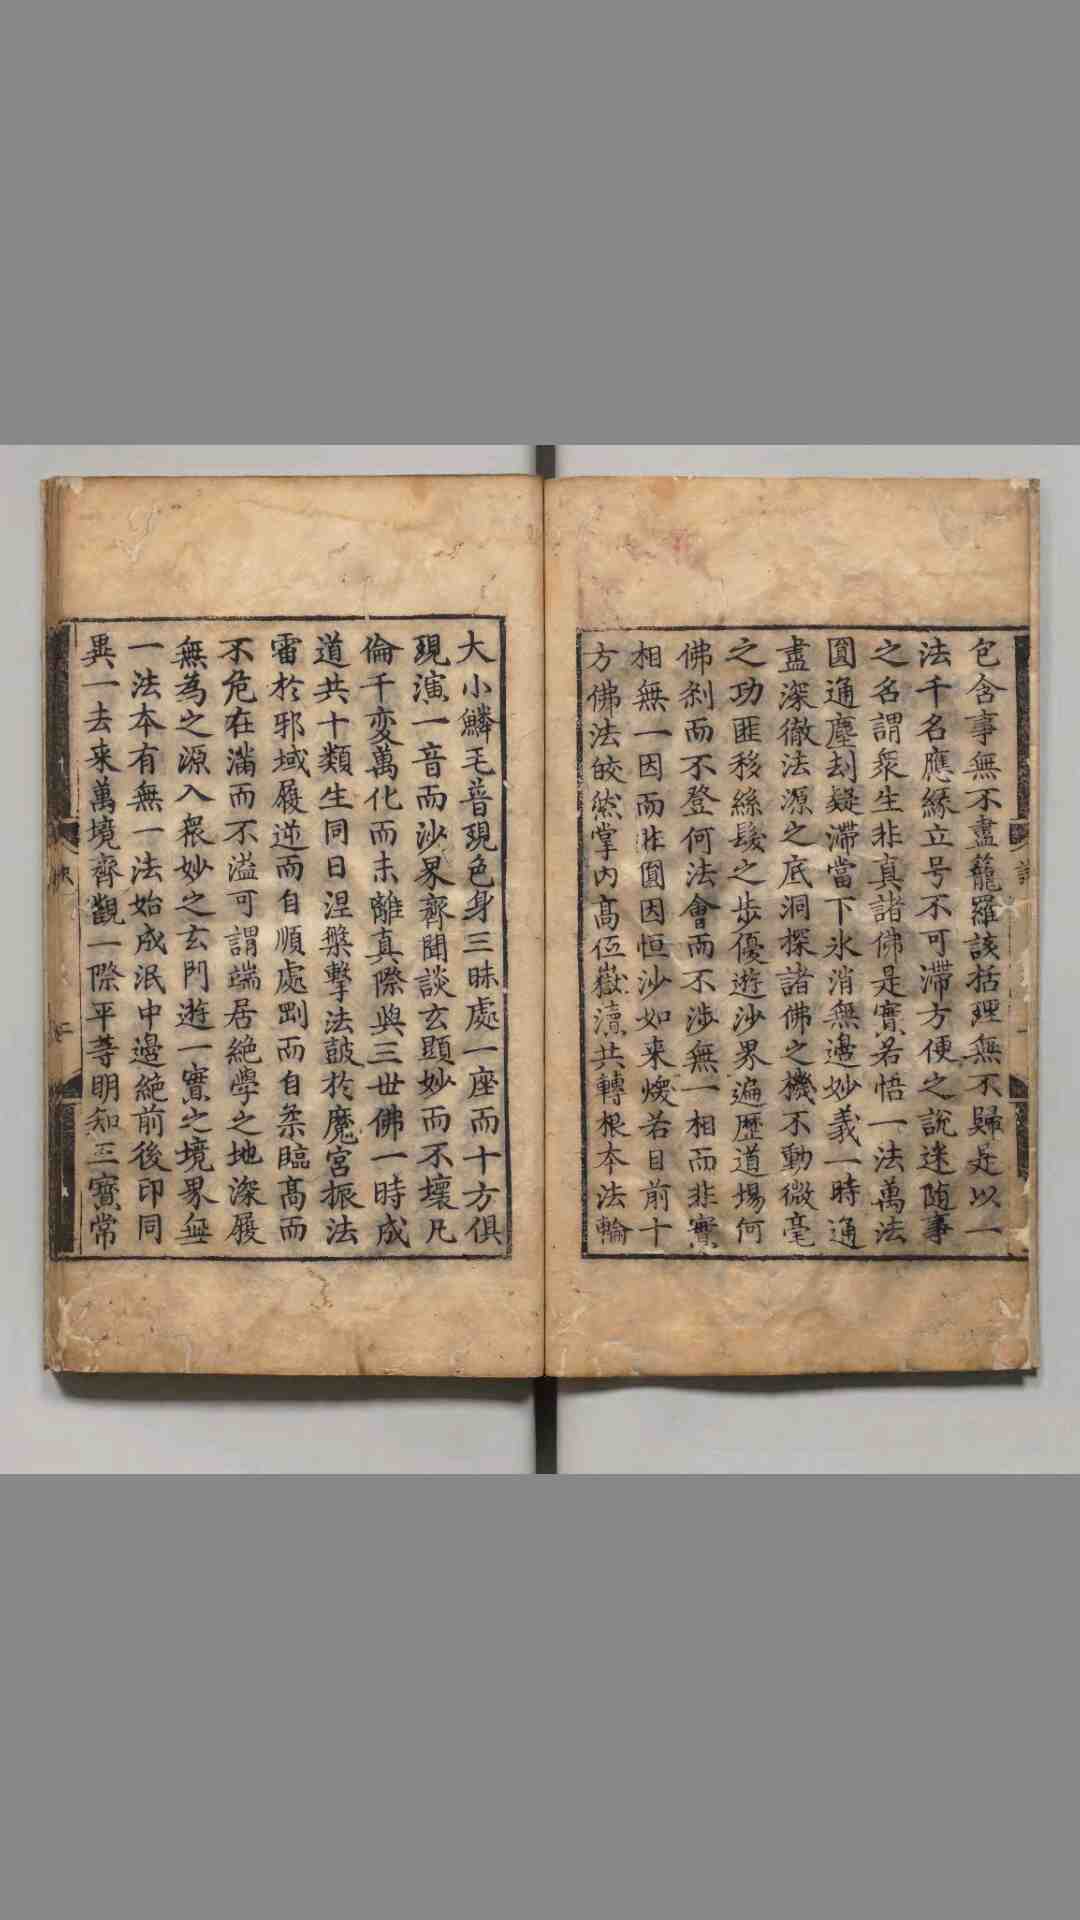 包含事無不盡籠羅該括理無不歸是以一
法千名應緣立号不可滯方便之說迷随事
之名謂衆生非真諸佛是實若悟一法萬法
圓通塵刧疑滯當下氷消無邊妙義一時通
盡深徹法源之底洞探諸佛之機不動微毫
之功匪移絲髮之步優遊沙界遍歷道場何
佛刹而不登何法會而不涉無一相而非實
相無一因而非圓因恒沙如来煥若目前十
方佛法皎然掌內高伍嶽瀆共轉根本法輪
大小鱗毛普現色身三昧處一座而十方俱
現演一音而沙界齊聞談玄顯妙而不壞凡
倫千変萬化而未離真際與三世佛一時成
道共十類生同日涅槃擊法皷於魔宮振法
雷於邪域履逆而自順處剛而自柔臨高而
不危在滿而不溢可謂端居絶學之地深履
無為之源入衆妙之玄門遊一實之境界無
一法本有無一法始成泯中邊絶前後印同
異一去来萬境齊觀一際平等明知三寳常